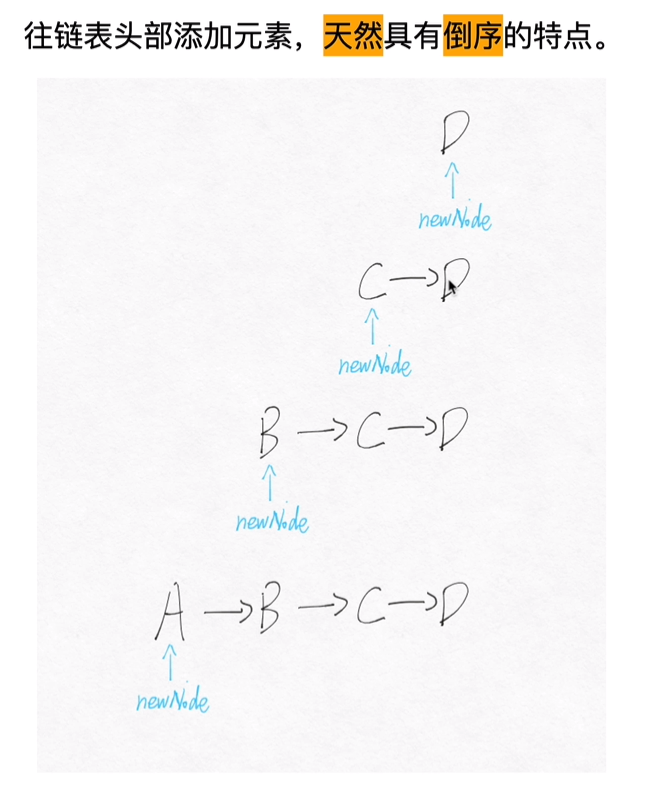 往链表头部添加元素，天然具有倒序的特点。
D
newNode
C→D
newNode
B→C→D
newNode
A→B→C→D
newNode